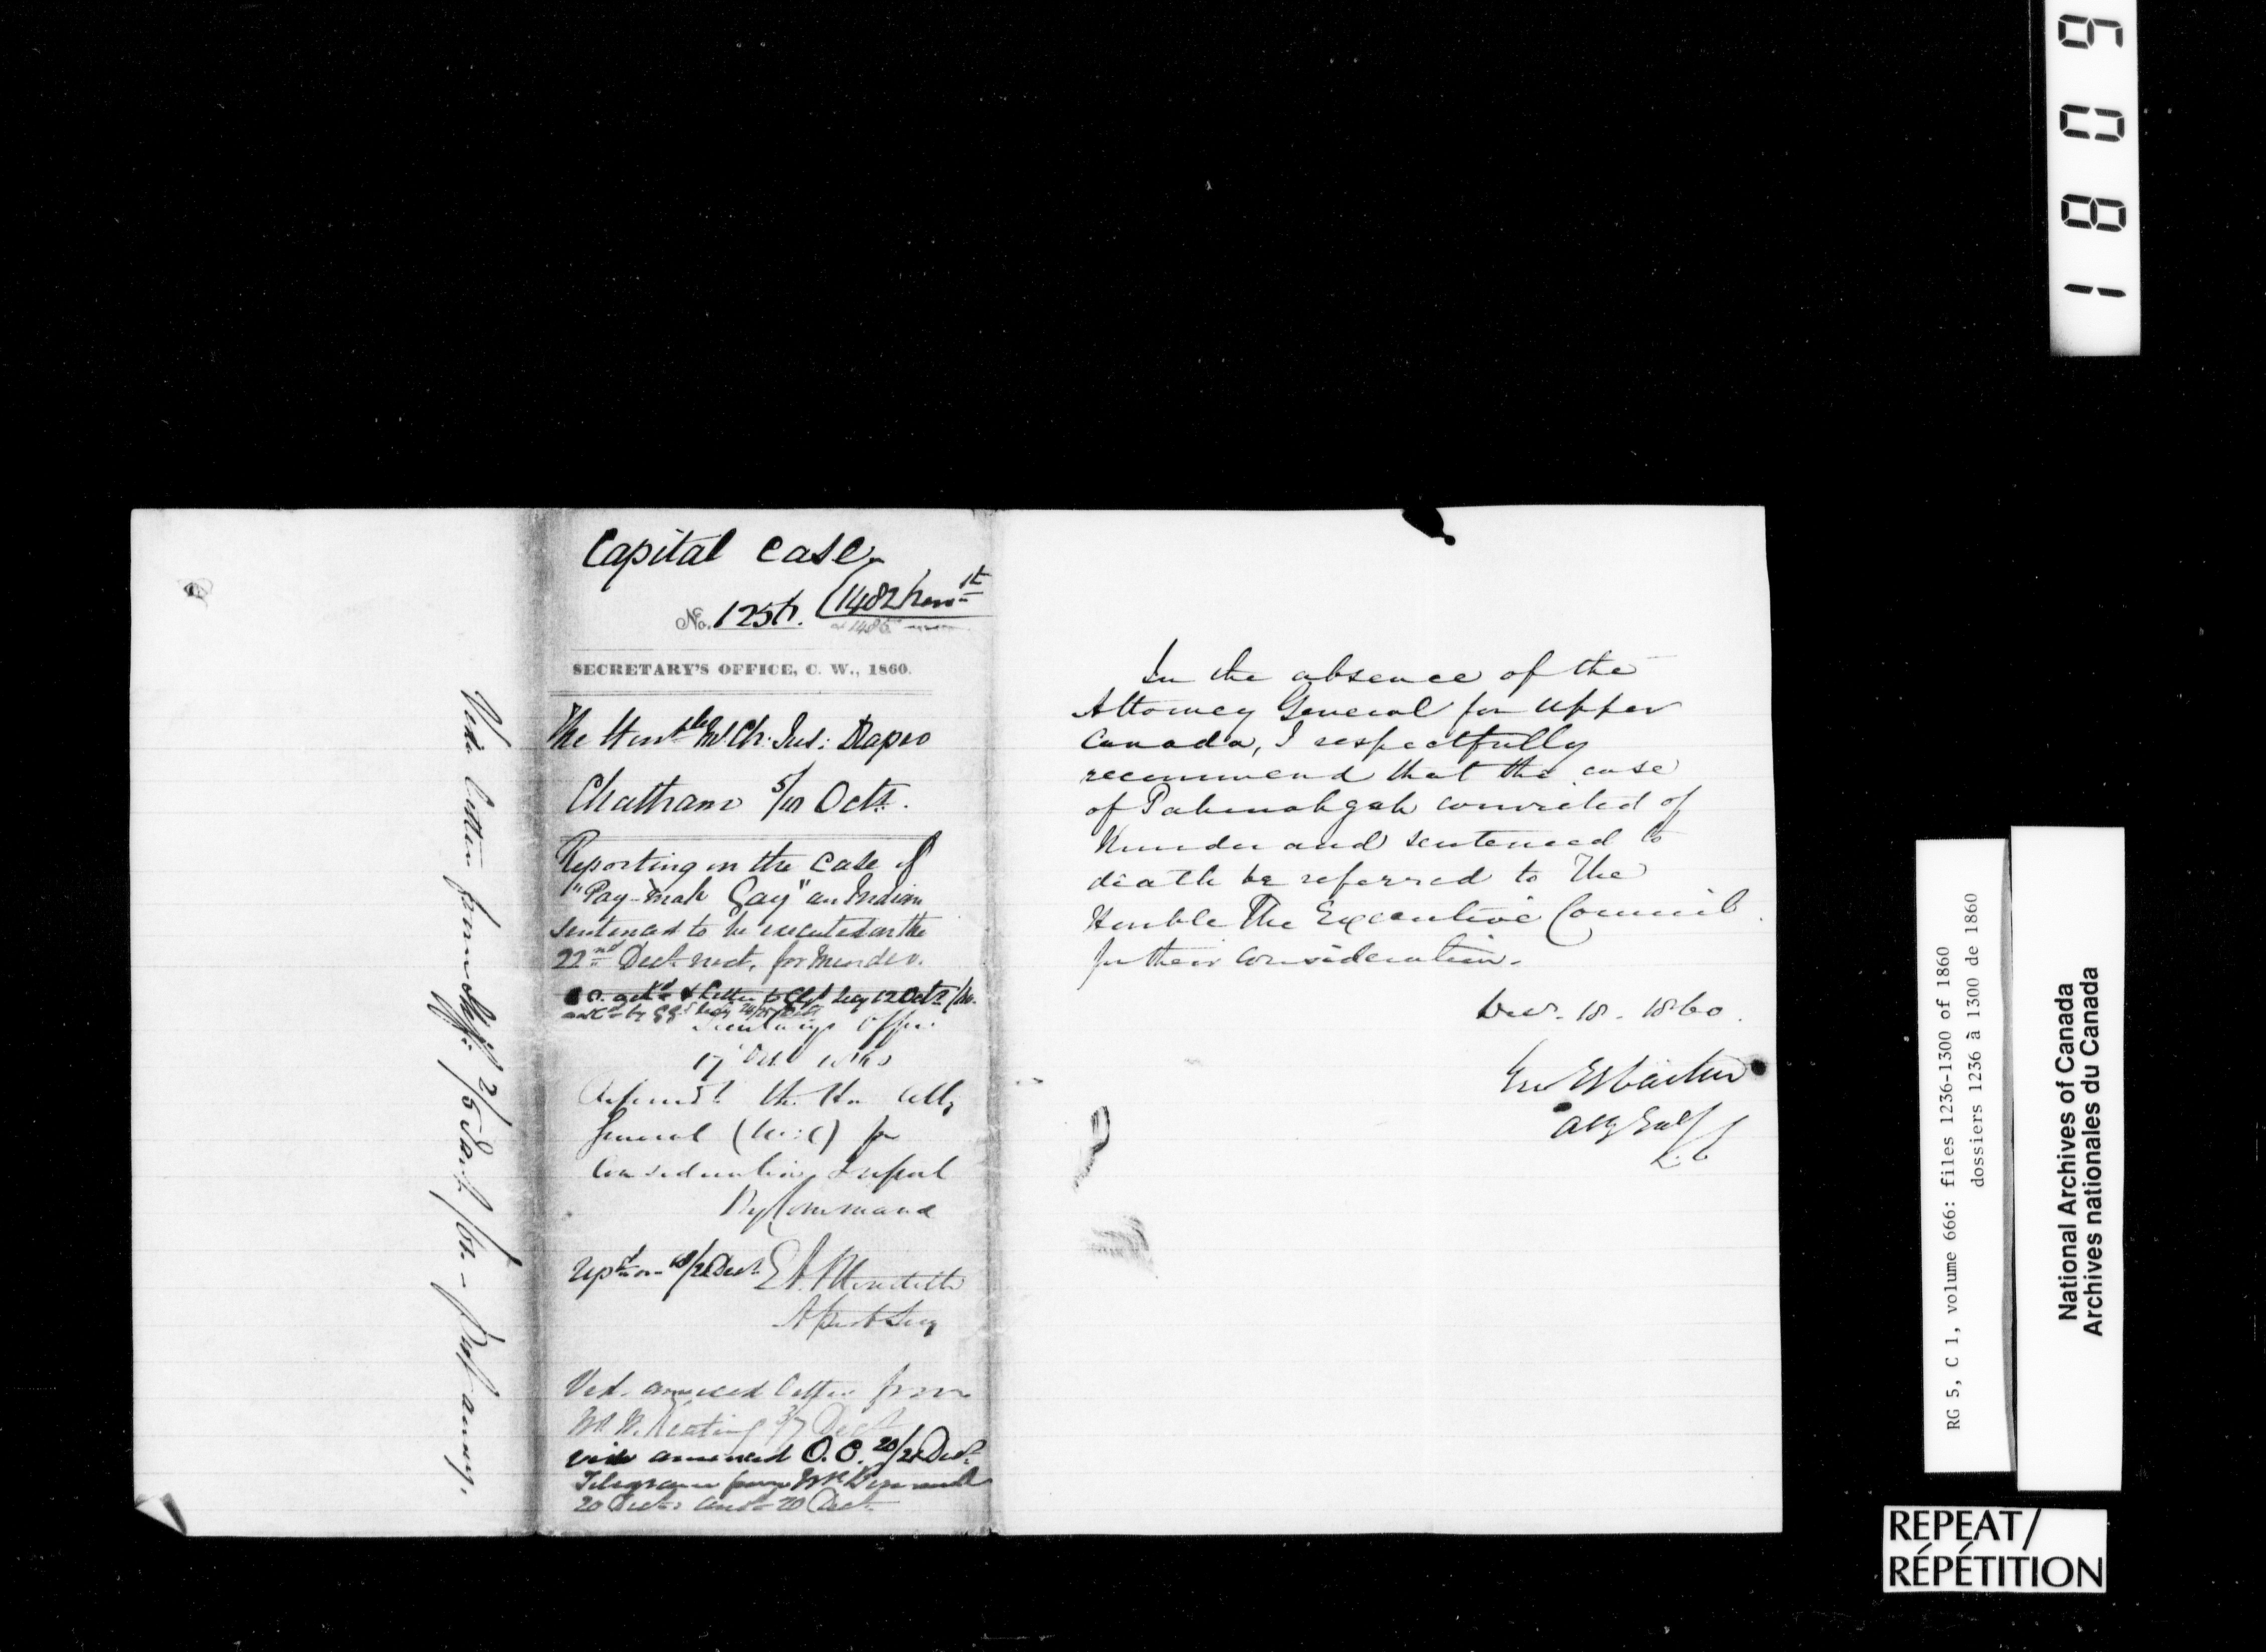 1809
Capital Case
No. 1256. (1482 [
SECRETARY'S OFFICE, C. W., 1860.
The Honble Mr Ch: Jus: Draper
Chatham 5/10 Octr.
Reporting on the case of
"Pay-mah Gay" an Indian
sentenced to be executed on the
22nd Decr next, for murder.
Secretarys Office
17 Oct 1860
Referred to the Hon Atty
General (U:C) for
Consideration & report
By Command
Repd on 18/21 Decr E A Meredith
Asst Secy
Vide annexed letter from
Mr W. Keating 3/7 Decr
vide annexed O.C. 20/21 Decr
Telegram from Mr
20 Decr & ansr 20 Decr
Vide letter from Shff: 2/5 Jany/61 - put away.
In the absence of the
Attorney General for Upper
Canada, I respectfully
recommend that the case
of Pahmahgah convicted of
Murder and sentenced to
death be referred to The
Honble The Executive Council
for their consideration.
Decr. 18. 1860.
Geo E Cartier
Atty Genl
L.C
RG 5, C 1, volume 666: files 1236-1300 of 1860
dossiers 1236 à 1300 de 1860
National Archives of Canada
Archives nationales du Canada
REPEAT/
RÉPÉTITION